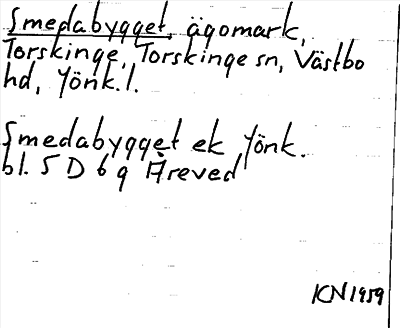 Smedabygget, ägomark,
Torskinge, Torskinge sn, Västbo
hd, Jönk.l.
Smedabygget ek Jönk.
bl. 5 D 6 g Åreved
KN 1959